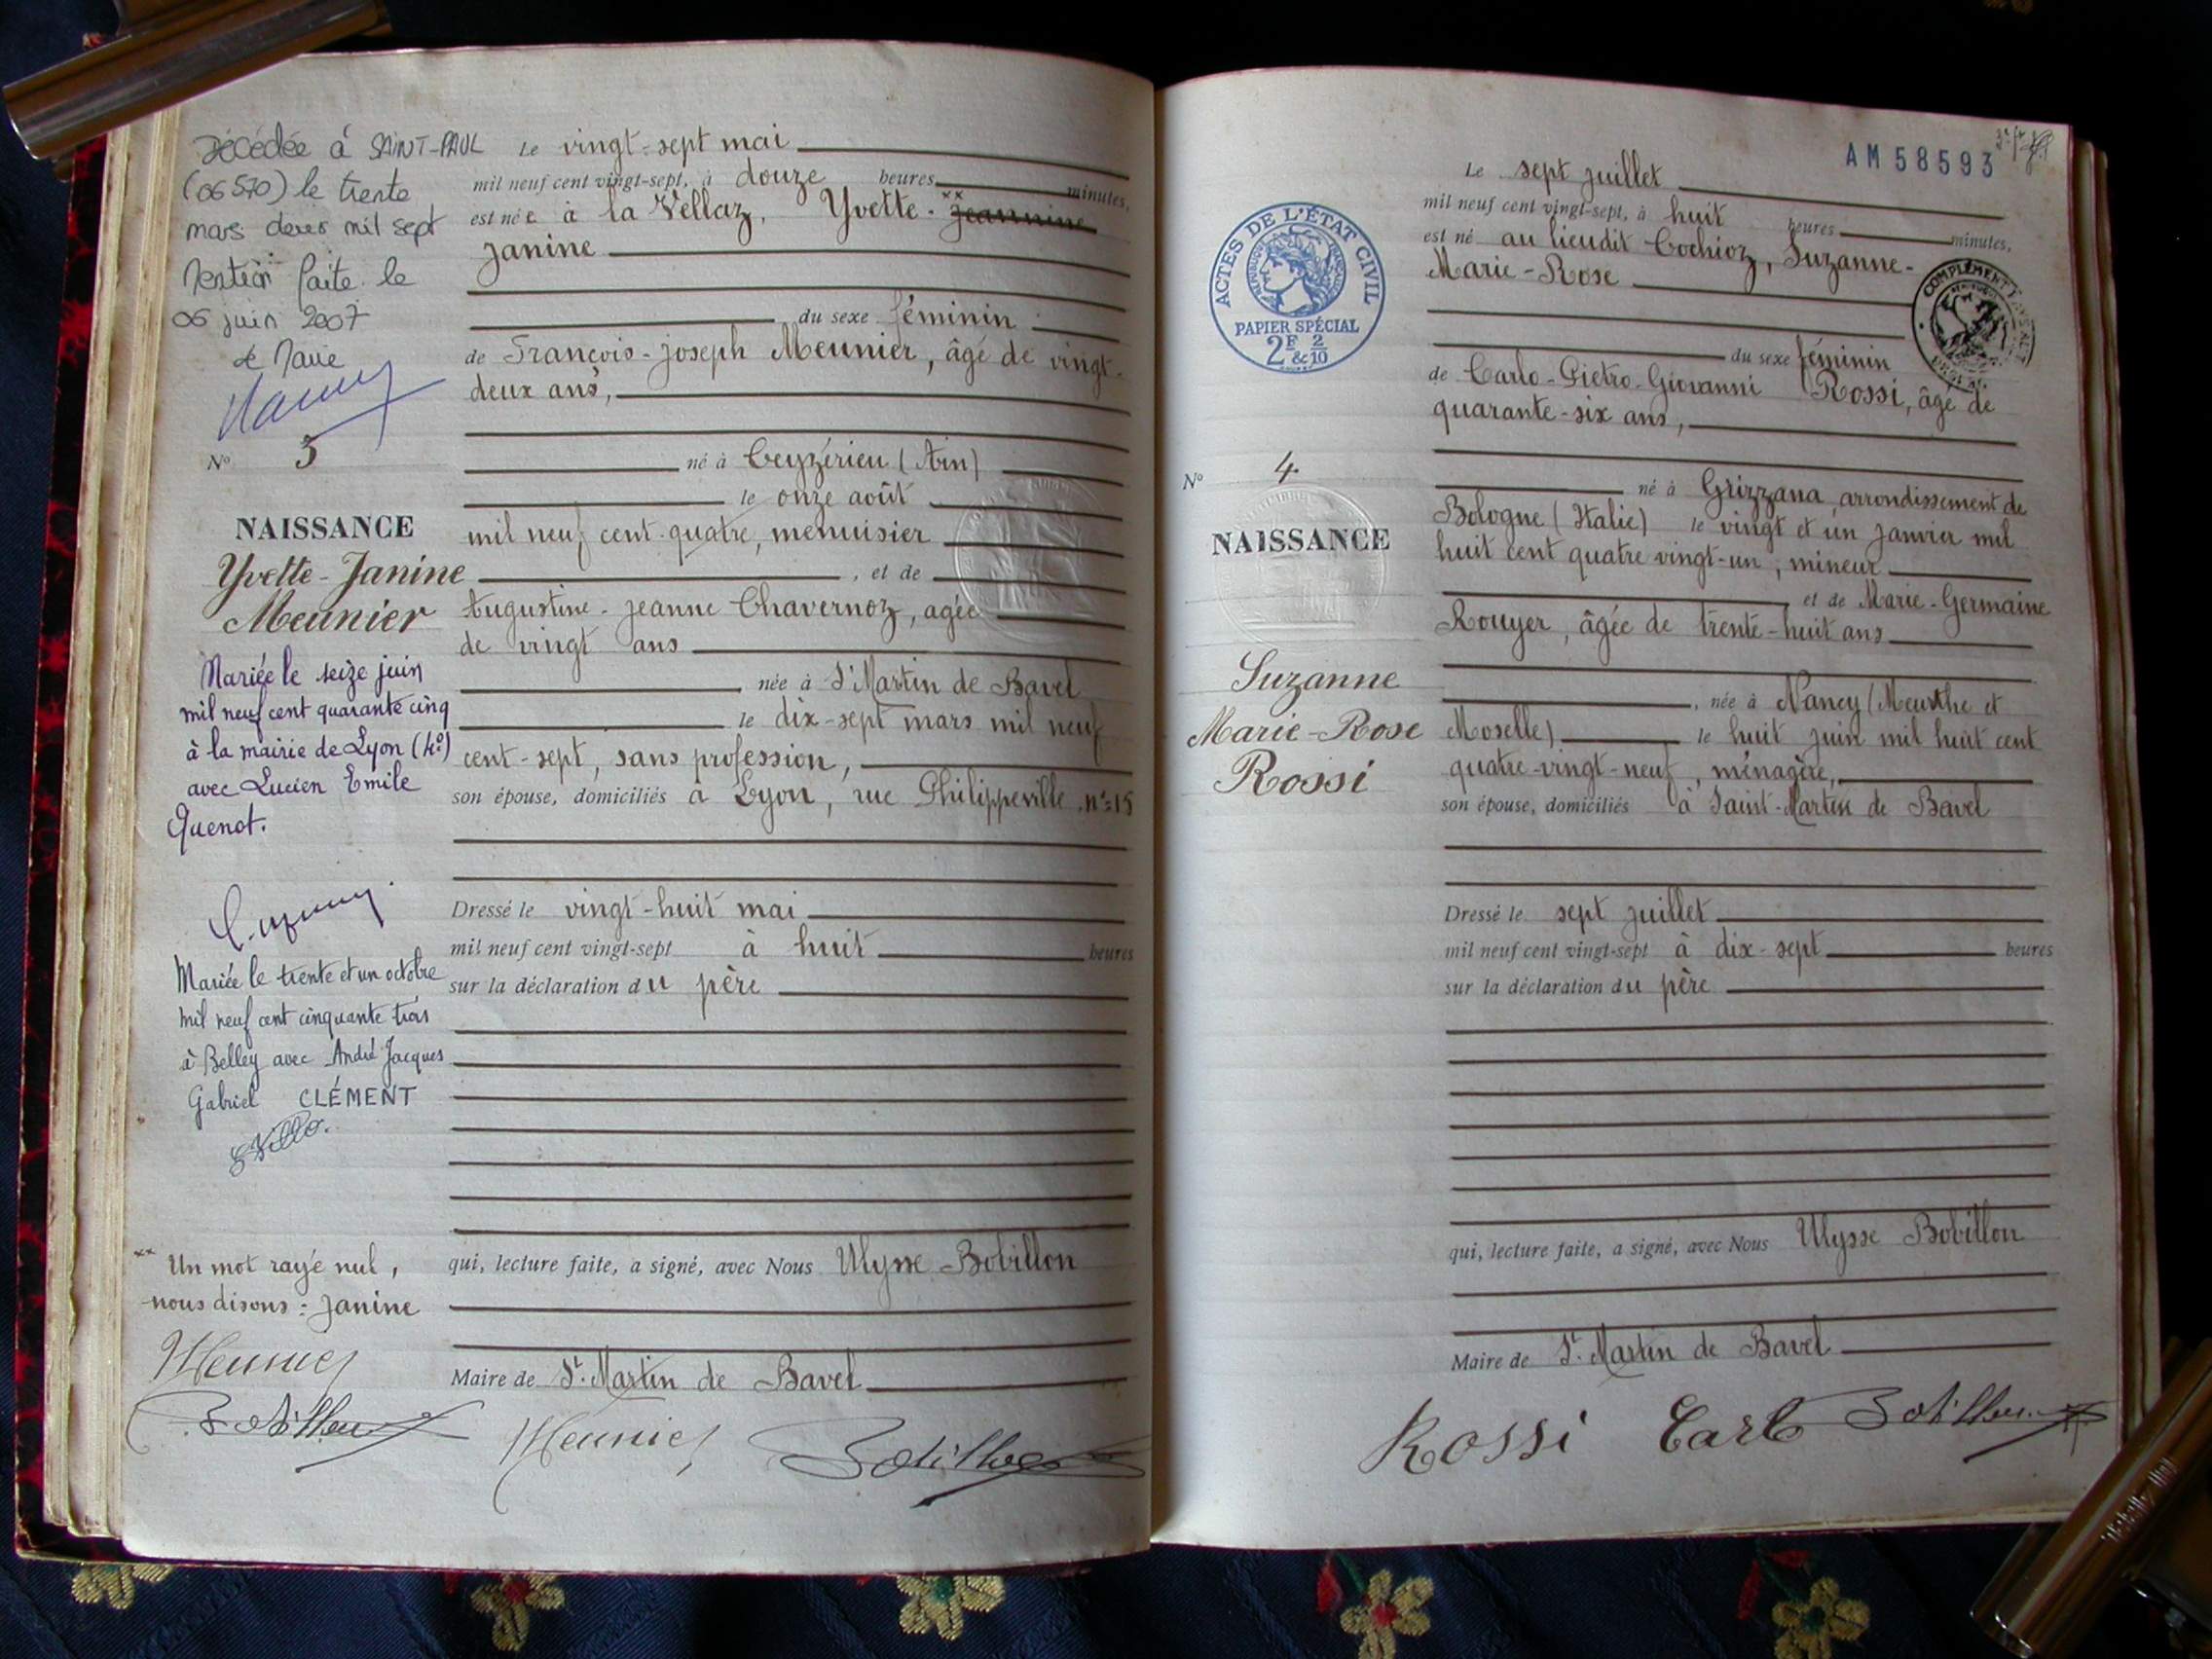 Décédée à SAINT-PAUL
(06570) le trente
mars deux mil sept
Mention faite le
06 juin 2007
Le Maire
N° 3
NAISSANCE
Yvette-Janine
Meunier
Mariée le seize juin
mil neuf cent quarante cinq
à la mairie de Lyon (4e)
avec Lucien Emile
Quenot.
Mariée le trente et un octobre
mil neuf cent cinquante trois
à Belley avec André Jacques
Gabriel CLÉMENT
xx Un mot rayé nul,
nous disons : Janine
Meunier
Bobillon
Le vingt-sept mai
mil neuf cent vingt-sept, à douze heures minutes,
est née à la Vellaz, Yvette-xx Jeannine
Janine
du sexe féminin
de François-Joseph Meunier, âgé de vingt-
deux ans,
né à Ceyzérieu (Ain)
le onze août
mil neuf cent-quatre, menuisier
, et de
Augustine-Jeanne Chavernoz, agée
de vingt ans
née à St Martin de Bavel
le dix-sept mars mil neuf
cent-sept, sans profession,
son épouse, domiciliés à Lyon, rue Philippeville, n°15
Dressé le vingt-huit mai
mil neuf cent vingt-sept à huit heures
sur la déclaration du père
qui, lecture faite, a signé, avec Nous Ulysse Bobillon
Maire de St. Martin de Bavel
Meunier Bobillon
AM 58593
ACTES DE L'ÉTAT CIVIL
PAPIER SPÉCIAL
2F & 2/10
COMPLÉMENT
N° 4
NAISSANCE
Suzanne
Marie-Rose
Rossi
Le sept juillet
mil neuf cent vingt-sept, à huit heures minutes,
est né au lieudit Cochioz, Suzanne-
Marie-Rose
du sexe féminin
de Carlo-Pietro-Giovanni Rossi, âgé de
quarante-six ans,
né à Grizzana, arrondissement de
Bologne (Italie) le vingt et un janvier mil
huit cent quatre vingt-un, mineur
et de Marie-Germaine
Rouyer, âgée de trente-huit ans
, née à Nancy (Meurthe et
Moselle) le huit juin mil huit cent
quatre-vingt-neuf, ménagère,
son épouse, domiciliés à Saint-Martin de Bavel
Dressé le sept juillet
mil neuf cent vingt-sept à dix-sept heures
sur la déclaration du père
qui, lecture faite, a signé, avec Nous Ulysse Bobillon
Maire de St. Martin de Bavel
Rossi Carlo Bobillon